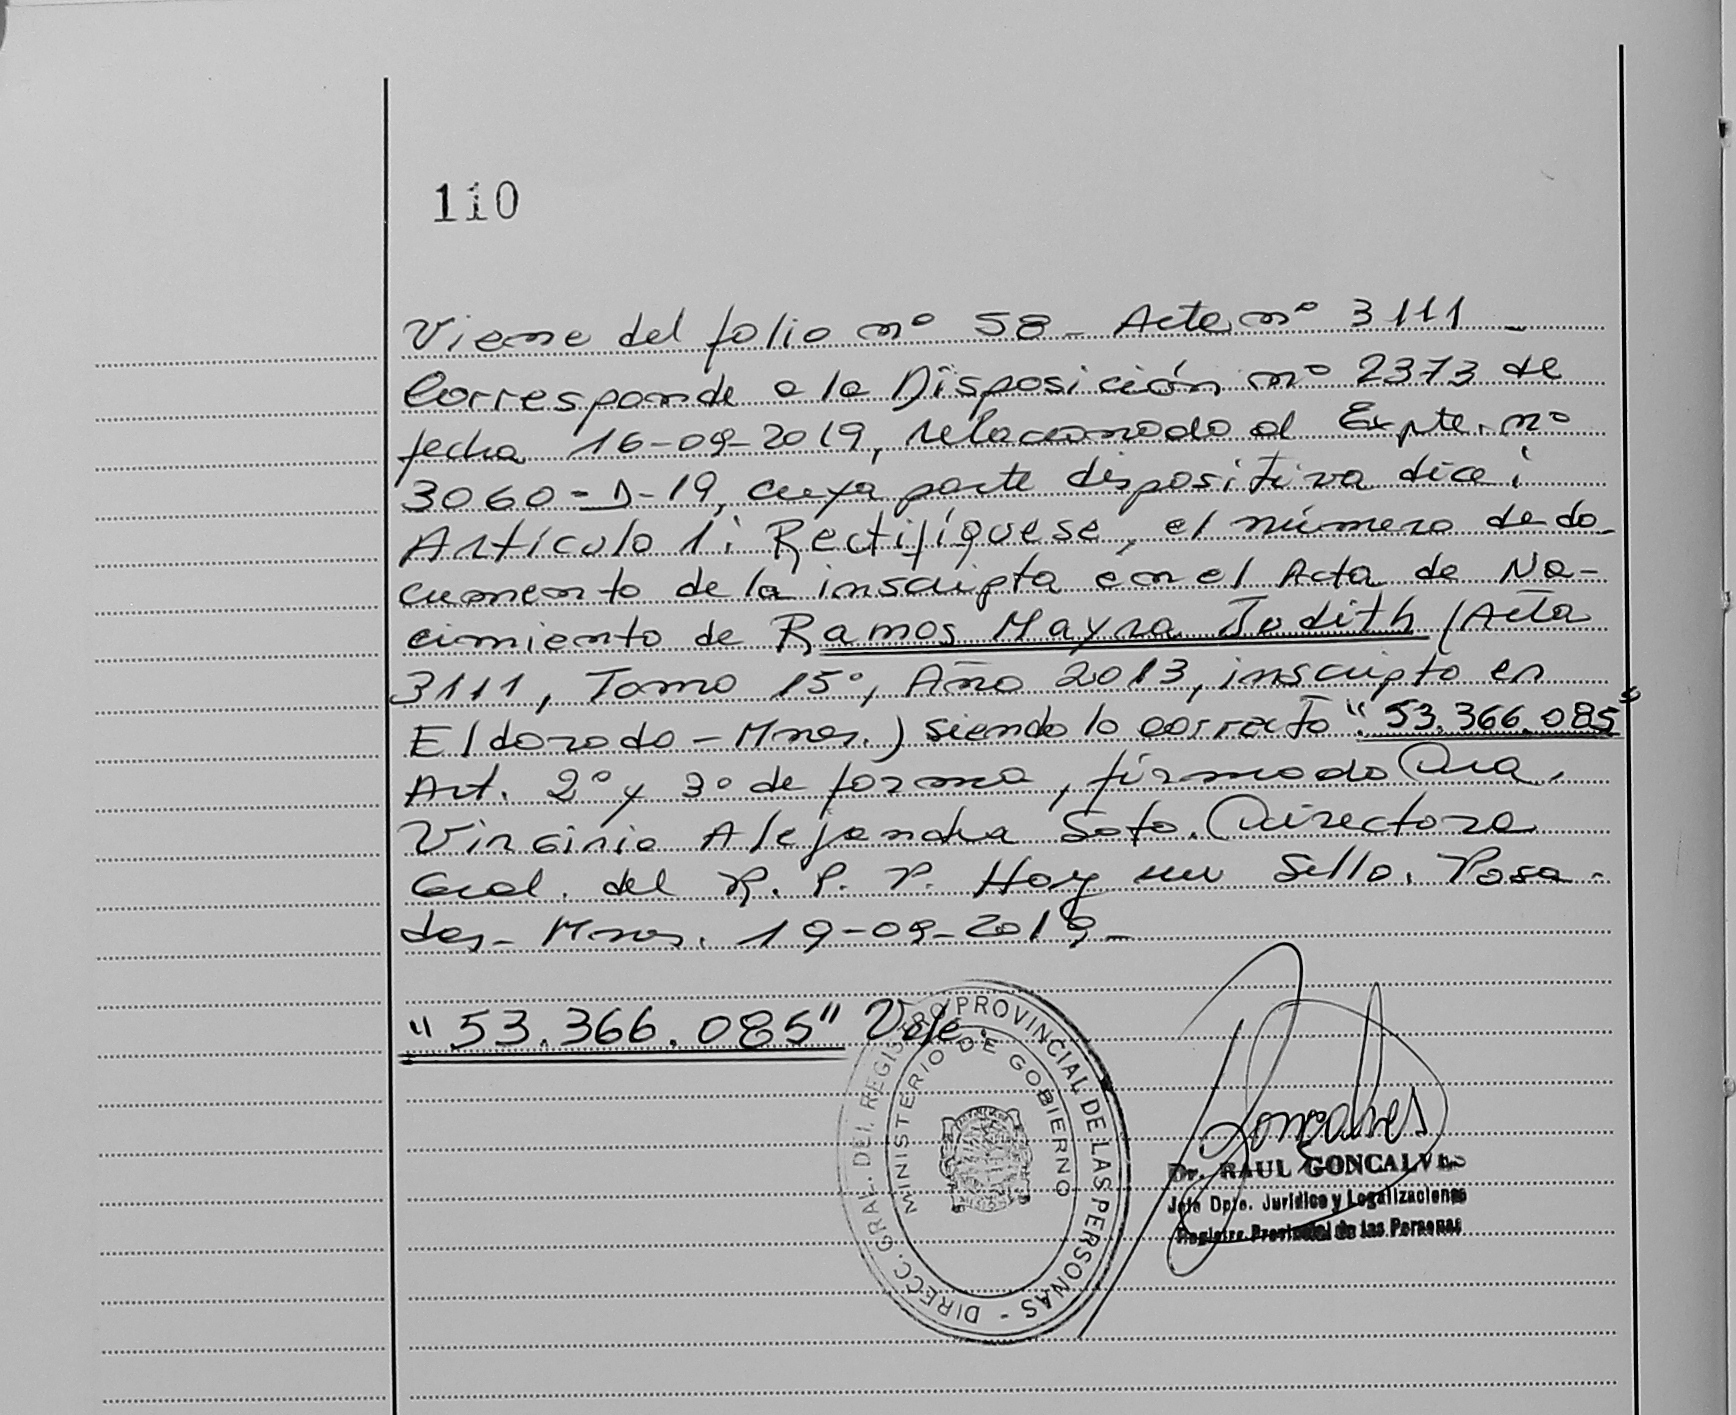 110
Viene del folio nº 58 - Acta nº 3111 -
Corresponde a la Disposición nº 2373 de
fecha 16-09-2019, relacionado al Expte. nº
3060-D-19, cuya parte dispositiva dice:
Artículo 1: Rectifíquese, el número de do-
cumento de la inscripta en el Acta de Na-
cimiento de Ramos Mayra Judith (Acta
3111, Tomo 15º, Año 2013, inscripto en
Eldorado - Mnes.) siendo lo correcto "53.366.085"
Art. 2º y 3º de forma, firmado Dra.
Virginia Alejandra Soto. Directora
Gral. del R. P. P. Hay un Sello. Posa-
das - Mnes. 19-09-2019-
"53.366.085" Vale.
DIRECC. GRAL. DEL REGISTRO PROVINCIAL DE LAS PERSONAS -
MINISTERIO DE GOBIERNO
Goncalves
Dr. RAUL GONCALVES
Jefe Dpto. Jurídico y Legalizaciones
Registro Provincial de las Personas